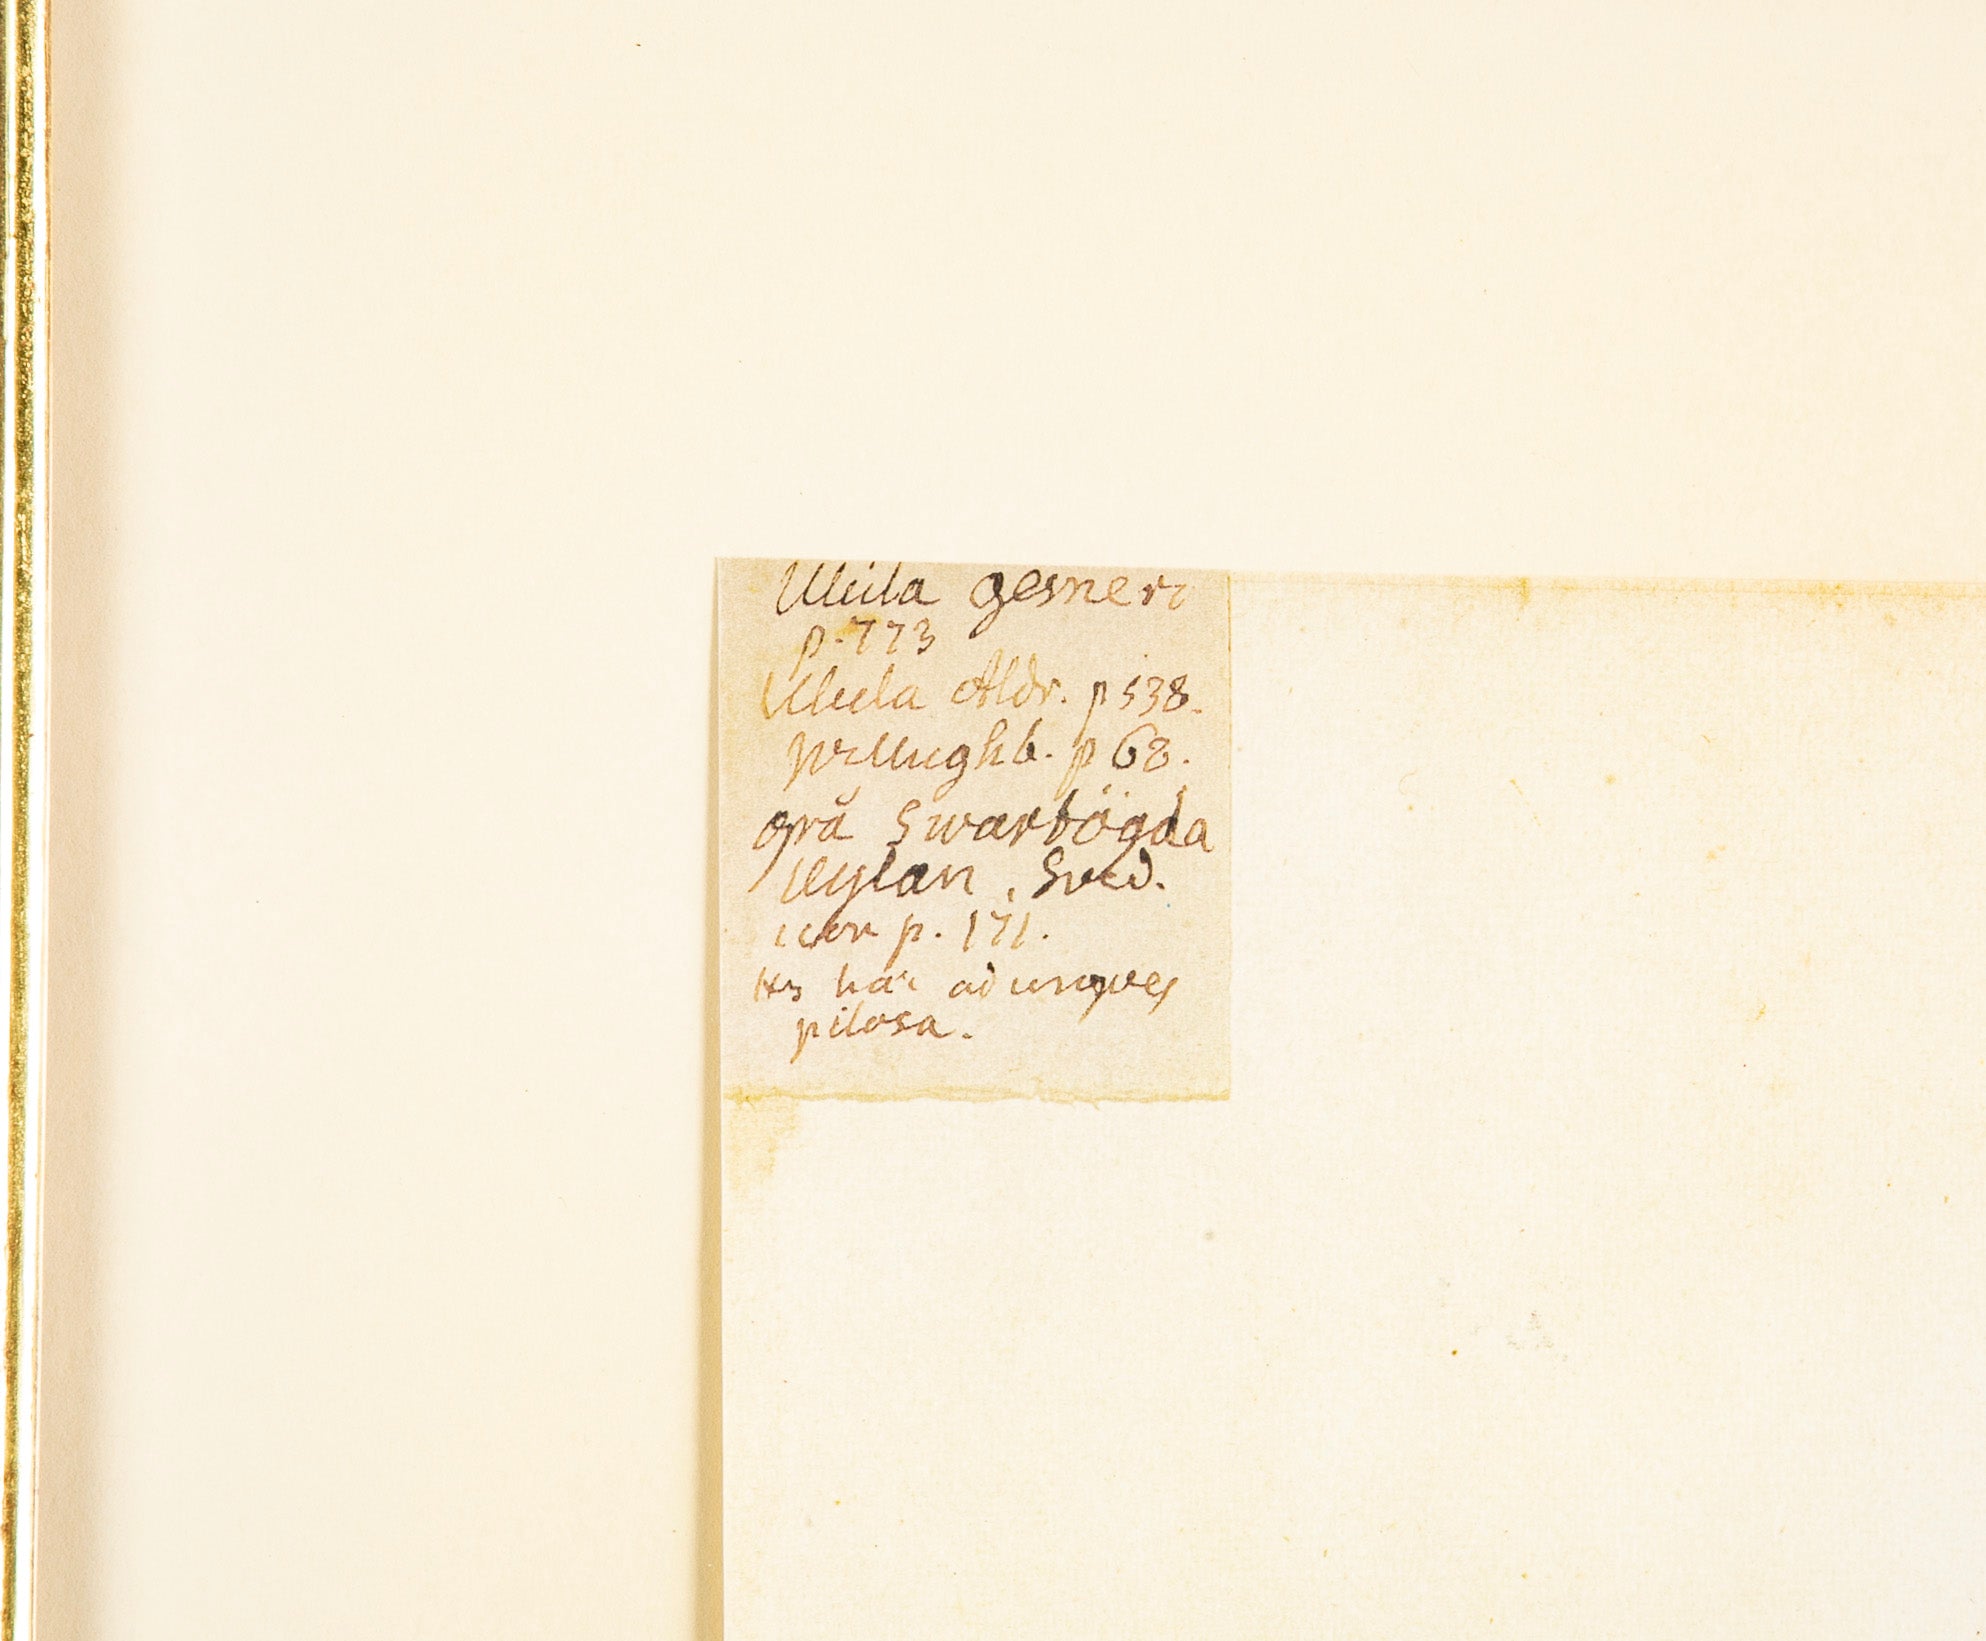 Ulula Gesneri
p. 773
Ulula Aldr. p 538.
Willughb. p 68.
Grå Swartögda
Uglan, Sved.
icon p. 171.
ad ungves
pilosa.